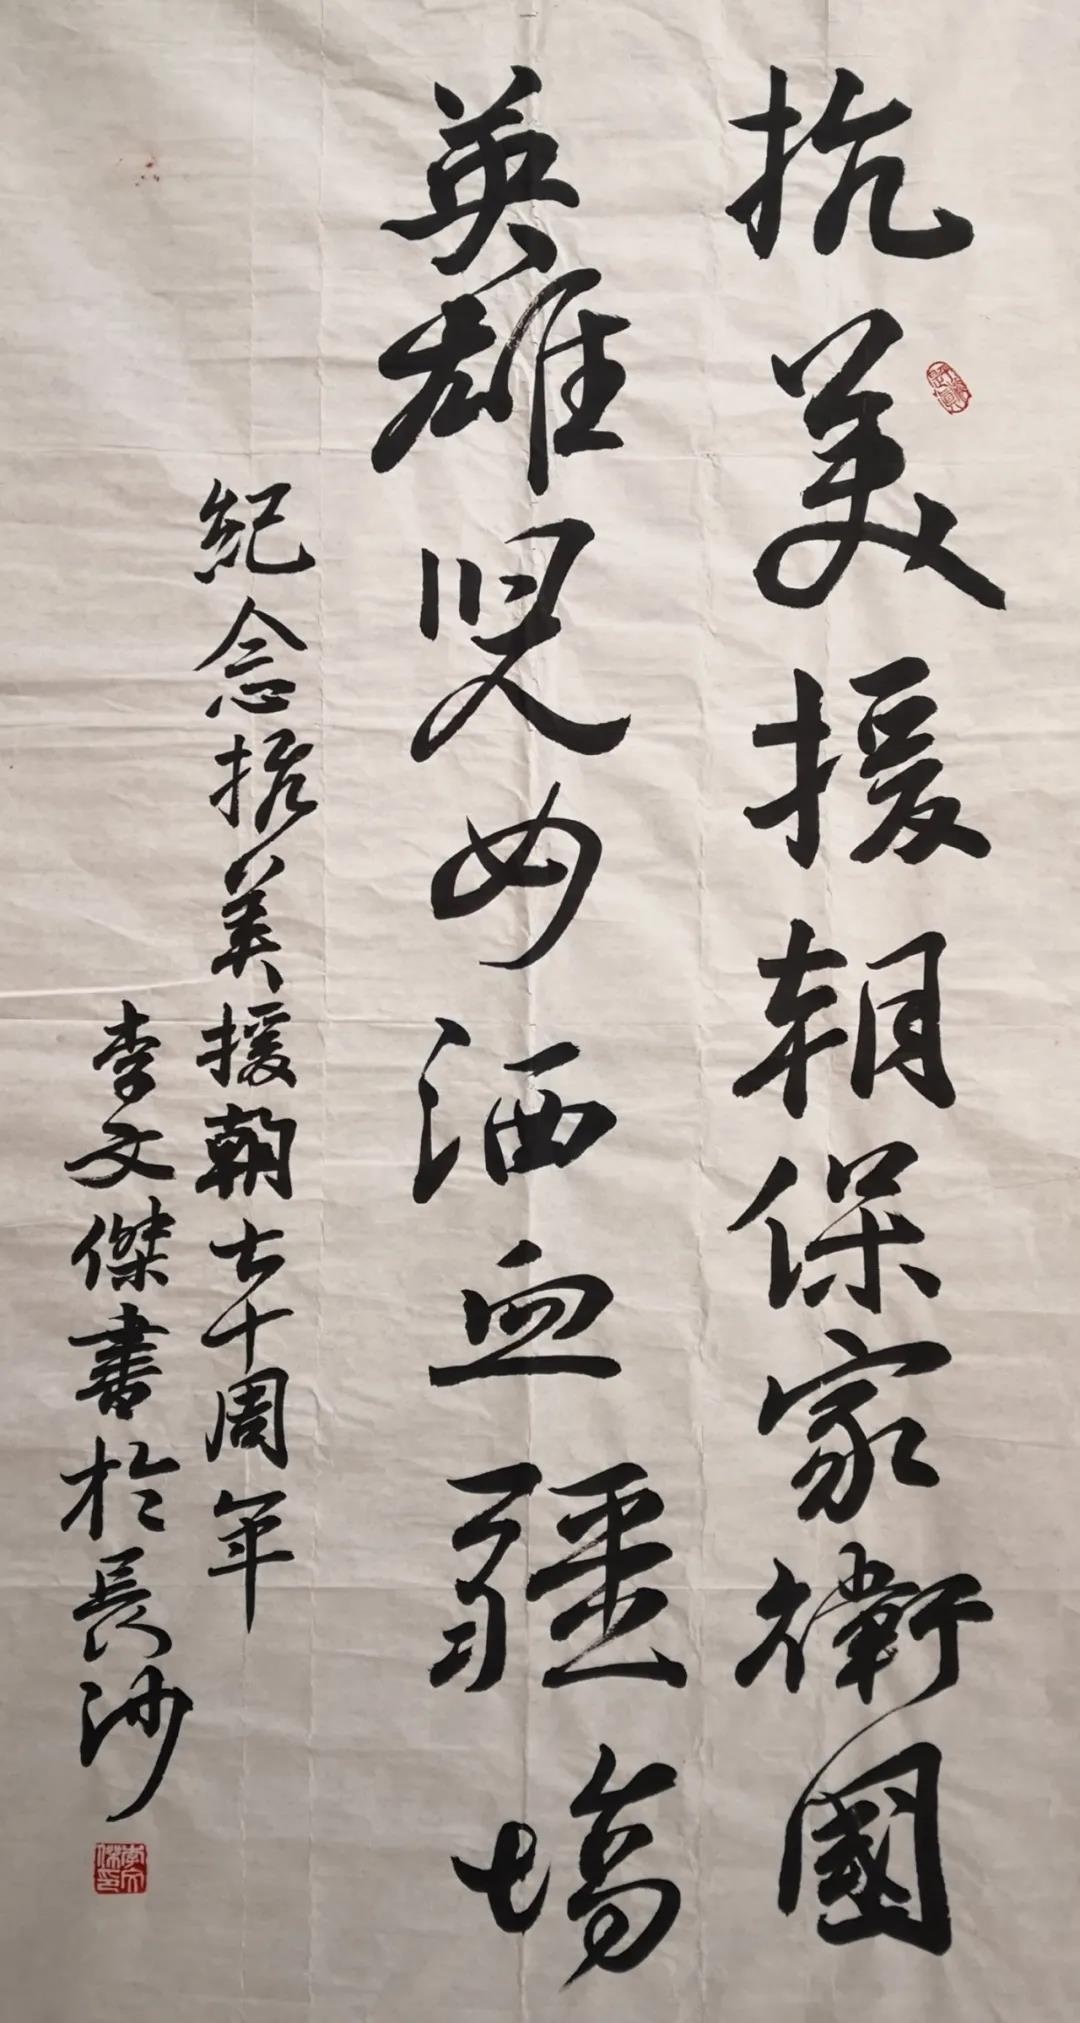 抗美援朝保家衛國
英雄児女洒血疆場
紀念抗美援朝七十周年
李文傑書於長沙
李文傑印